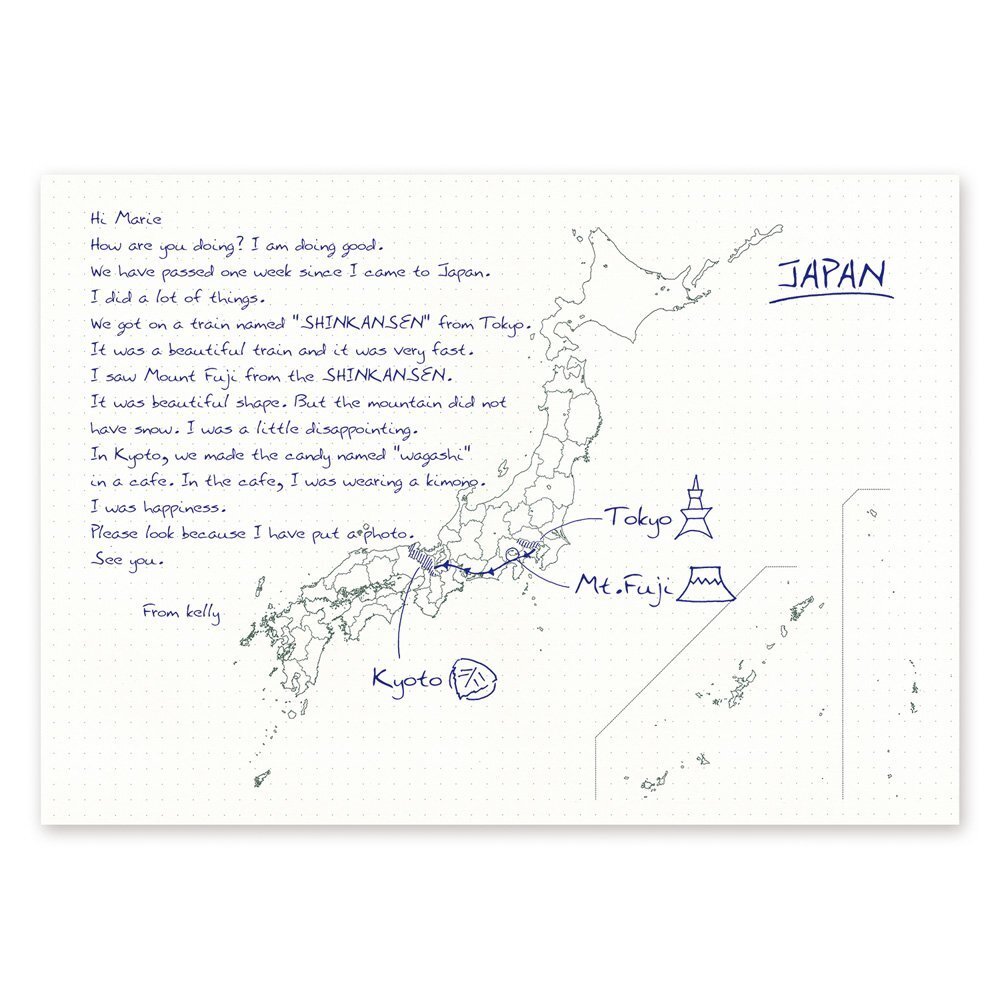 Hi Marie
How are you doing? I am doing good.
We have passed one week since I came to Japan.
I did a lot of things.
We got on a train named "SHINKANSEN" from Tokyo.
It was a beautiful train and it was very fast.
I saw Mount Fuji from the SHINKANSEN.
It was beautiful shape. But the mountain did not
have snow. I was a little disappointing.
In Kyoto, we made the candy named "wagashi"
in a cafe. In the cafe, I was wearing a kimono.
I was happiness.
Please look because I have put a photo.
See you.
From kelly
JAPAN
Tokyo
Mt.Fuji
Kyoto